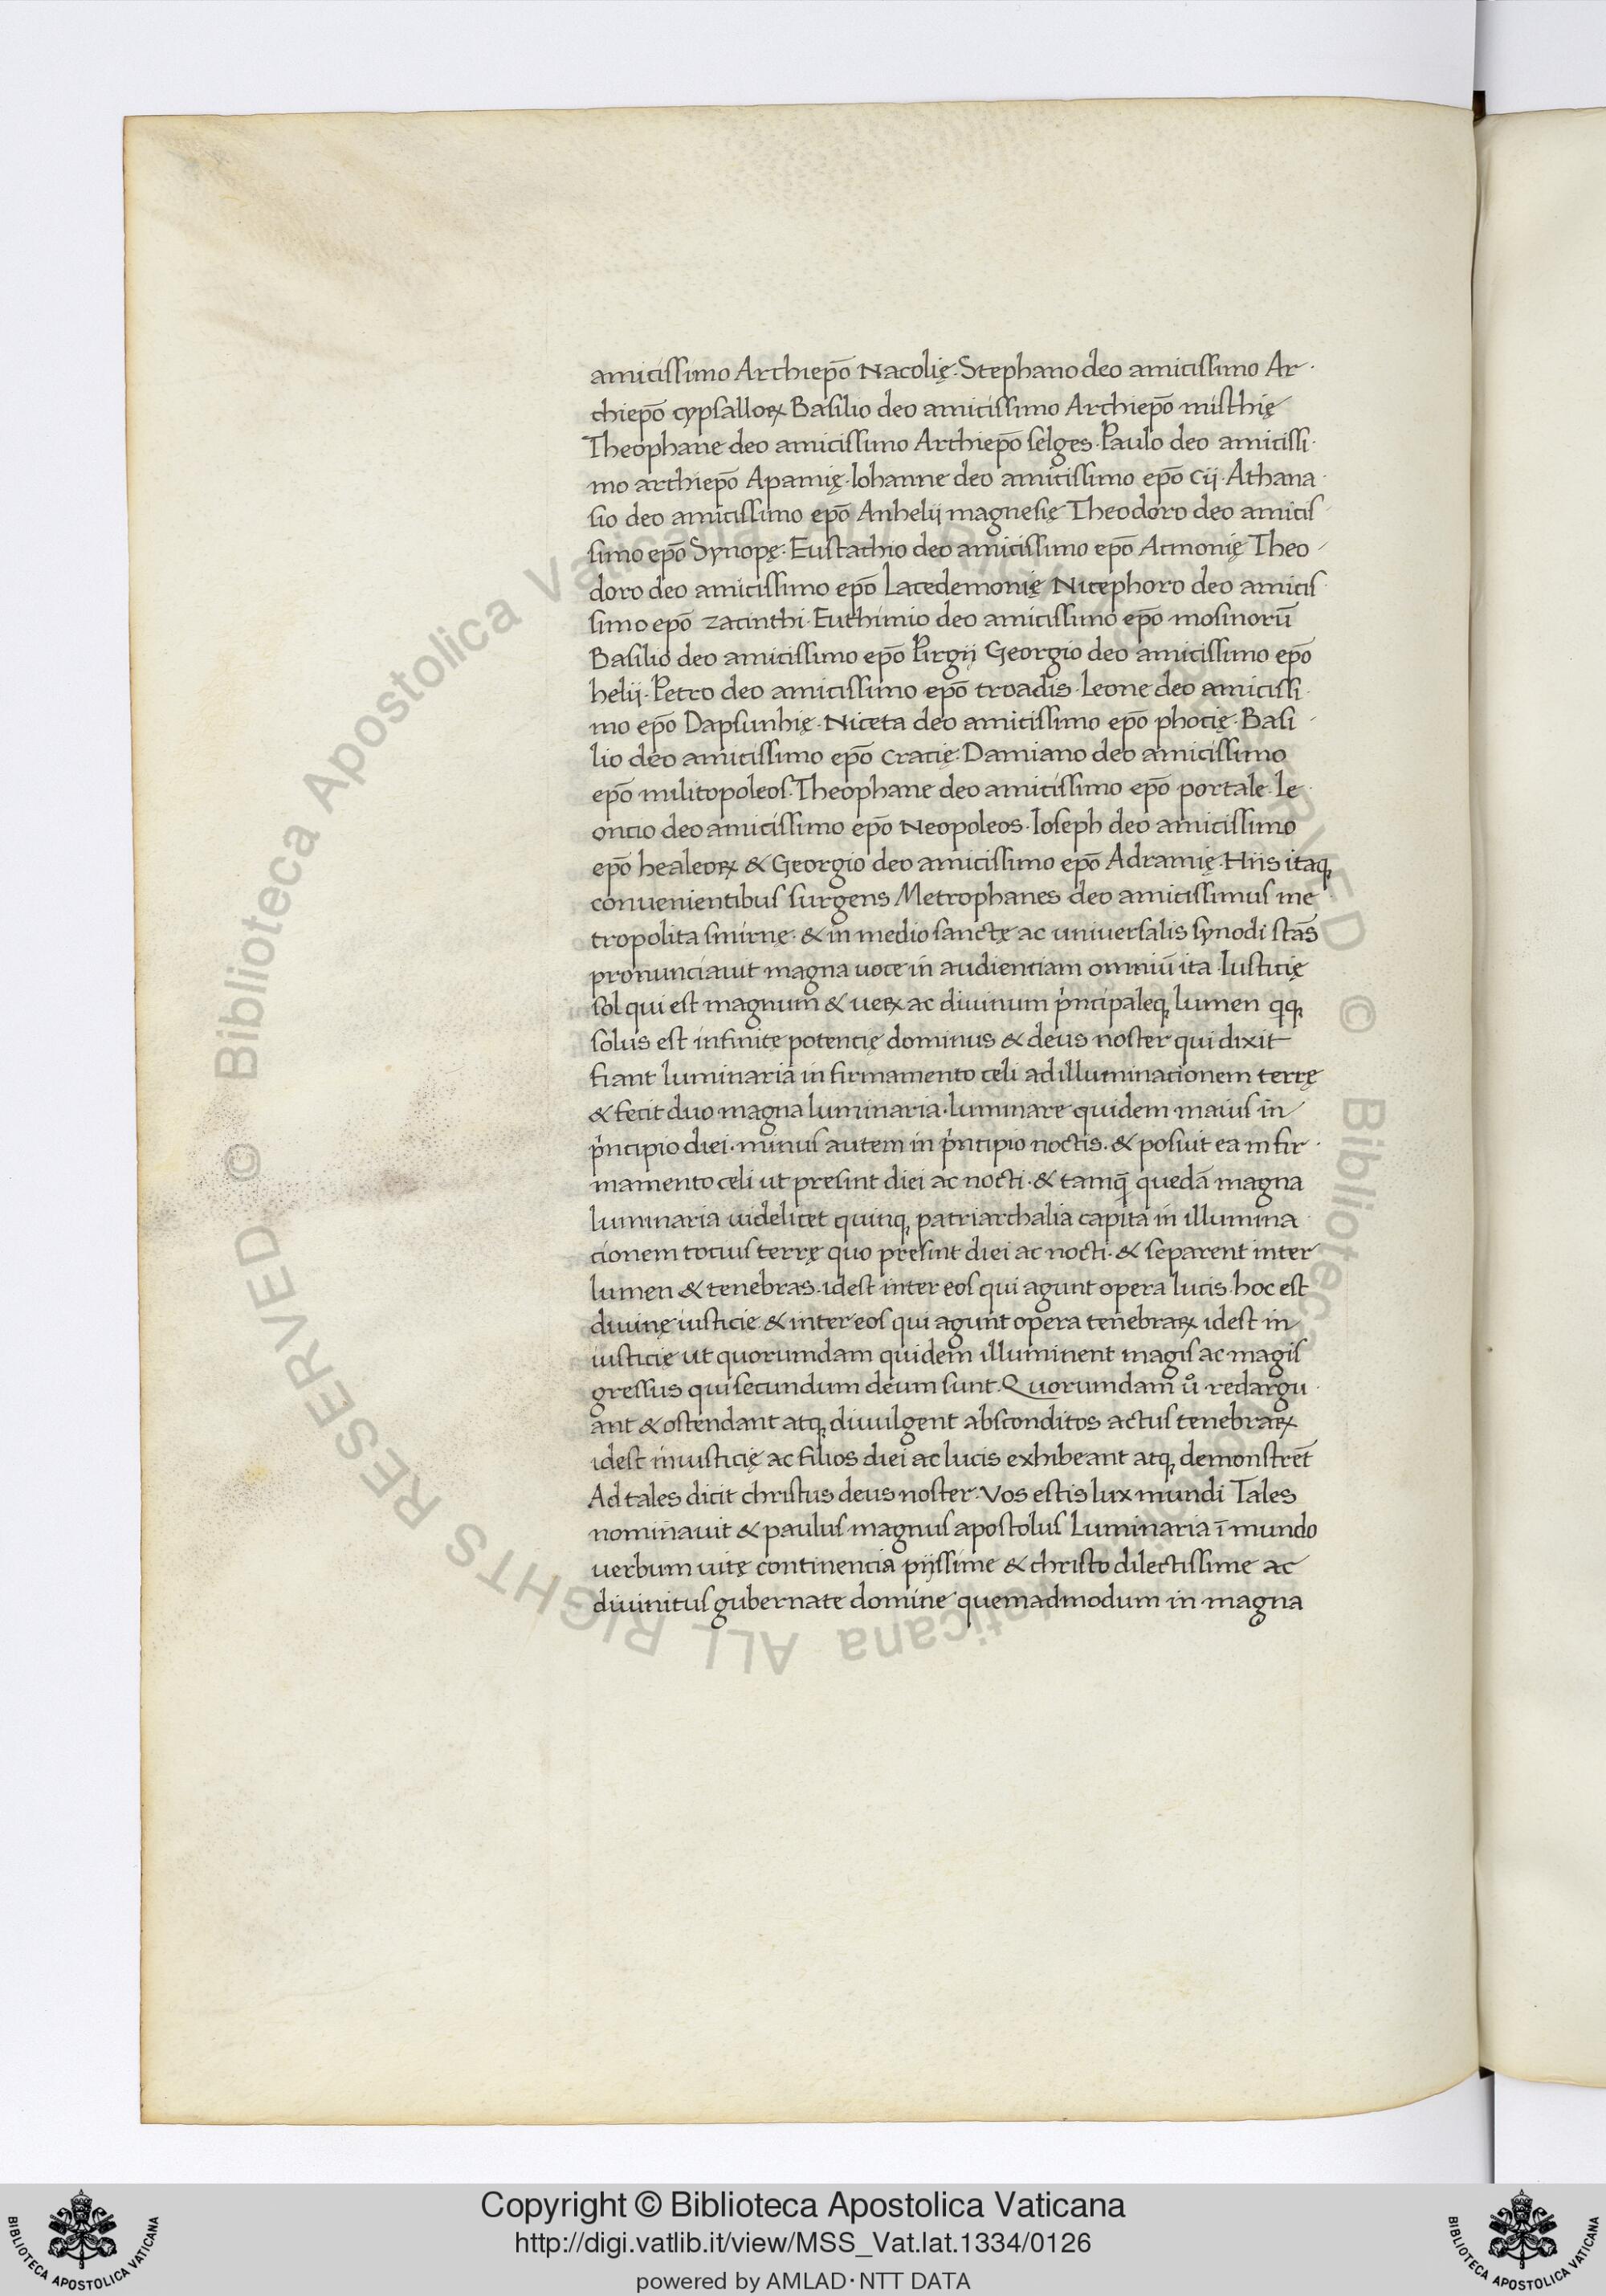 amicissimo Archiepo̅ Nacolię · Stephano deo amicissimo Ar ·
chiepo̅ cypsalloꝝ Basilio deo amicissimo Archiepo̅ misthię
Theophane deo amicissimo Archiepo̅ selges · Paulo deo amicissi ·
mo archiepo̅ Apamię · Iohanne deo amicissimo epo̅ cij · Athana ·
sio deo amicissimo epo̅ Anhelij magnesię Theodoro deo amicis
simo epo̅ Synopę : Eustachio deo amicissimo epo̅ Acmonię Theo
doro deo amicissimo epo̅ Lacedemonię Nicephoro deo amicis
simo epo̅ zacinthi · Euthimio deo amicissimo epo̅ mosinoru̅
Basilio deo amicissimo epo̅ Pirgij Georgio deo amicissimo epo̅
helij · Petro deo amicissimo epo̅ troadis · Leone deo amicissi ·
mo epo̅ Dapsunhię · Niceta deo amicissimo epo̅ phocię · Basi
lio deo amicissimo epo̅ cracię · Damiano deo amicissimo
epo̅ militopoleos · Theophane deo amicissimo epo̅ portale · le ·
oncio deo amicissimo epo̅ Neopoleos · Ioseph deo amicissimo
epo̅ healeoꝝ & Georgio deo amicissimo epo̅ Adramię · Hiis itaqꝫ
conuenientibus surgens Metrophanes deo amicissimus me
tropolita smirnę · & in medio sanctę ac uniuersalis synodi sta̅s
pronunciauit magna uoce in audienciam omniu̅ ita · Iusticię
sol qui est magnum & ueꝝ ac diuinum pͥncipaleqꝫ lumen qͥqꝫ
solus est infinitę potencię dominus & deus noster qui dixit
fiant luminaria in firmamento celi ad illuminacionem terrę
& fecit duo magna luminaria · luminare quidem maius in
pͥncipio diei · minus autem in pͥncipio noctis · & posuit ea in fir ·
mamento celi ut presint diei ac nocti · & tamq̅ queda̅ magna
luminaria uidelicet quinqꝫ patriarchalia capita in illumina ·
cionem tocius terrę quo presint diei ac nocti · & separent inter
lumen & tenebras · idest inter eos qui agunt opera lucis · hoc est
diuinę iusticie · & inter eos qui agunt opera tenebraꝝ idest in
iusticię ut quorumdam quidem illuminent magis ac magis
gressus qui secundum deum sunt · Quorumdam uͦ redargu ·
ant & ostendant atqꝫ diuulgent absconditos actus tenebraꝝ
idest iniusticię ac filios diei ac lucis exhibeant atqꝫ demonstre̅t
Ad tales dicit christus deus noster · Vos estis lux mundi Tales
nominauit & paulus magnus apostolus Luminaria i̅ mundo
uerbum uitę continencia pijssime & christo dilectissime ac
diuinitus gubernate domine quemadmodum in magna
© Biblioteca Apostolica Vaticana ALL RIGHTS RESERVED
Copyright © Biblioteca Apostolica Vaticana
http://digi.vatlib.it/view/MSS_Vat.lat.1334/0126
powered by AMLAD·NTT DATA
BIBLIOTECA APOSTOLICA VATICANA
BIBLIOTECA APOSTOLICA VATICANA